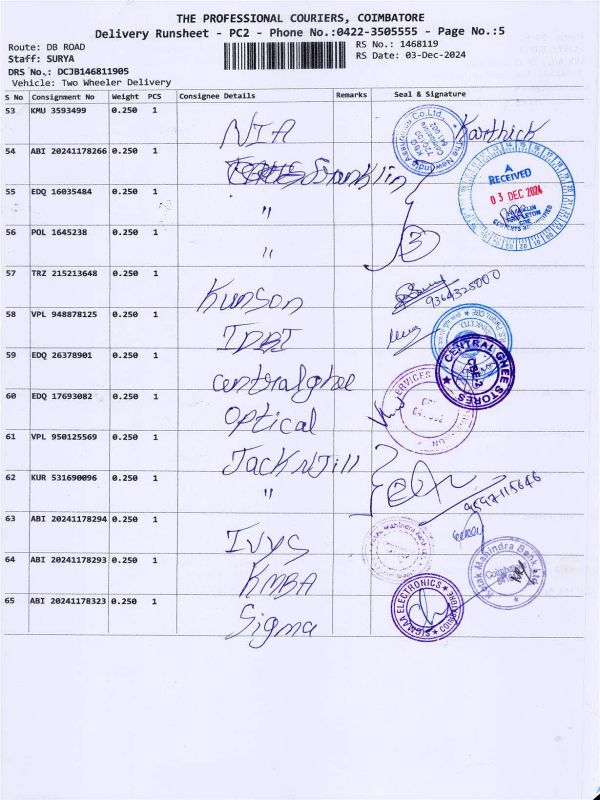 THE PROFESSIONAL COURIERS, COIMBATORE
Delivery Runsheet - PC2 - Phone No.:0422-3505555 - Page No.:5
Route: DB ROAD
RS No.: 1468119
Staff: SURYA
RS Date: 03-Dec-2024
DRS No.: DCJB146811905
Vehicle: Two Wheeler Delivery
S No Consignment No Weight PCS Consignee Details Remarks Seal & Signature
53 KMU 3593499 0.250 1 NIA Karthick
54 ABI 20241178266 0.250 1 Franklin
A
RECEIVED
03 DEC 2024
55 EDQ 16035484 0.250 1 "
56 POL 1645238 0.250 1 " 3
57 TRZ 215213648 0.250 1 Kunson 9364325000
58 VPL 948878125 0.250 1 IDBI
59 EDQ 26378901 0.250 1 centralghee CENTRAL GHEE STORES CBE-2
60 EDQ 17693082 0.250 1 optical SERVICES
61 VPL 950125569 0.250 1 Jack N Jill
62 KUR 531690096 0.250 1 " 9597115646
63 ABI 20241178294 0.250 1 Ivys
64 ABI 20241178293 0.250 1 KMBA Mahindra Bank
65 ABI 20241178323 0.250 1 Sigma SIGMAA ELECTRONICS COIMBATORE